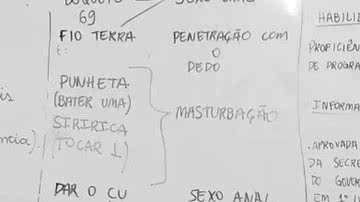 69
FIO TERRA
PENETRAÇÃO COM
O
DEDO
PUNHETA
(BATER UMA)
SIRIRICA
(TOCAR 1)
MASTURBAÇÃO
DAR O CU
SEXO ANAL
HABILI
PROFICIÊN
DE PROGRA
INFORMA
.APROVADA
DA SECRE
DO GOVER
EM 1º L